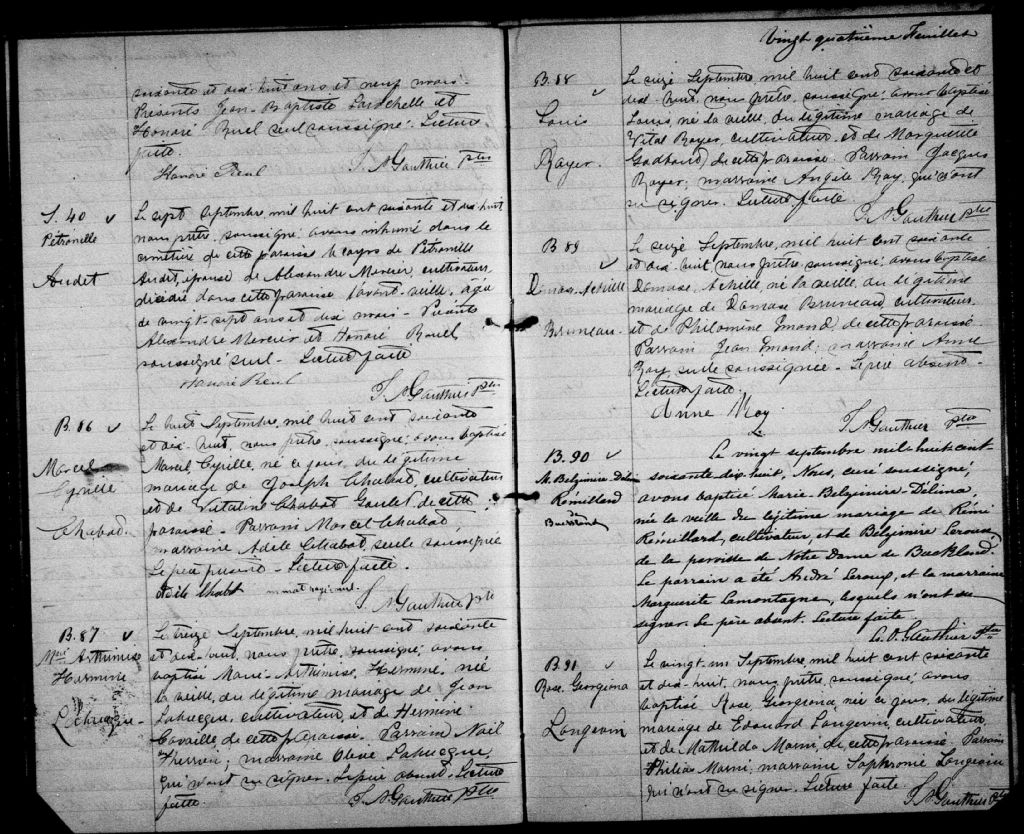 soixante et dix-huit ans et neuf mois.
Présents Jean-Baptiste Larochelle et
Honoré Ruel seul soussigné. Lecture
faite
Honoré Ruel J. A. Gauthier Ptre
S. 40
Pétronille
Audet
Le sept Septembre, mil huit cent soixante et dix-huit
nous prêtre, soussigné, avons inhumé dans le
cimetière de cette paroisse le corps de Pétronille
Audet, épouse de Alexandre Mercier, cultivateur,
décédée dans cette paroisse l'avant-veille, agée
de vingt-sept ans et dix mois. Présents
Alexandre Mercier et Honoré Ruel
soussigné seul. Lecture faite
Honoré Ruel
J. A. Gauthier Ptre
B. 86
Marcel
Cyrille
Chabot
Le huit Septembre, mil huit cent soixante
et dix-huit, nous prêtre, soussigné, avons baptisé
Marcel, Cyrille, né ce jour, du légitime
mariage de Joseph Chabot, cultivateur
et de Chabot Goulet de cette
paroisse. Parrain Marcel Chabot,
marraine Adèle Chabot, seule soussignée
Le père présent. Lecture faite.
Adèle Chabot
J. A. Gauthier Ptre
B. 87
Marie Arthimise
Hermine
Le treize Septembre, mil huit cent soixante
et dix-huit, nous prêtre, soussigné, avons
baptisé Marie-Arthimise, Hermine, née
la veille, du légitime mariage de Jean
cultivateur, et de Hermine
de cette paroisse. Parrain Noël
Therrien; marraine Olive
qui n'ont su signer. Le père absent. Lecture
faite. J. A. Gauthier Ptre
Vingt quatrième Feuillet
B. 88
Louis
Royer.
Le seize Septembre, mil huit cent soixante et
dix-huit, nous prêtre, soussigné, avons baptisé
Louis, né la veille, du légitime mariage de
Vital Royer, cultivateur, et de Marguerite
Godbout, de cette paroisse. Parrain Jacques
Royer, marraine Angèle Roy, qui n'ont
su signer. Lecture faite
J. A. Gauthier Ptre
B 89
Damase Achille
Bruneau.
Le seize Septembre, mil huit cent soixante
et dix-huit, nous prêtre soussigné, avons baptisé
Damase, Achille, né la veille, du légitime
mariage de Damase Bruneau, cultivateur,
et de Philomène Emond, de cette paroisse
Parrain Jean Emond; marraine Anne
Roy seule soussignée. Le père absent.
Lecture faite.
Anne Roy
J. A. Gauthier Ptre
B. 90
M. Belzimire-Délina
Rémillard
Buckland
Le vingt septembre mil huit cent
soixante dix-huit, Nous, curé soussigné,
avons baptisé Marie-Belzimire-Délina,
née la veille du légitime mariage de Rémi
Rémillard, cultivateur, et de Belzimire Leroux
de la paroisse de Notre Dame de Buckland.
Le parrain a été André Leroux, et la marraine
Marguerite Lamontagne, lesquels n'ont su
signer. Le père absent. Lecture faite
Gauthier Ptre
B 91
Rose Georgiana
Langevin
Le vingt-un Septembre, mil huit cent soixante
et dix-huit, nous prêtre, soussigné, avons
baptisé Rose, Georgiana, née ce jour, du légitime
mariage de Edouard Langevin, cultivateur,
et de Mathilda de cette paroisse. Parrain
Philias marraine Sophronie Langevin
qui n'ont su signer. Lecture faite.
J. A. Gauthier Ptre